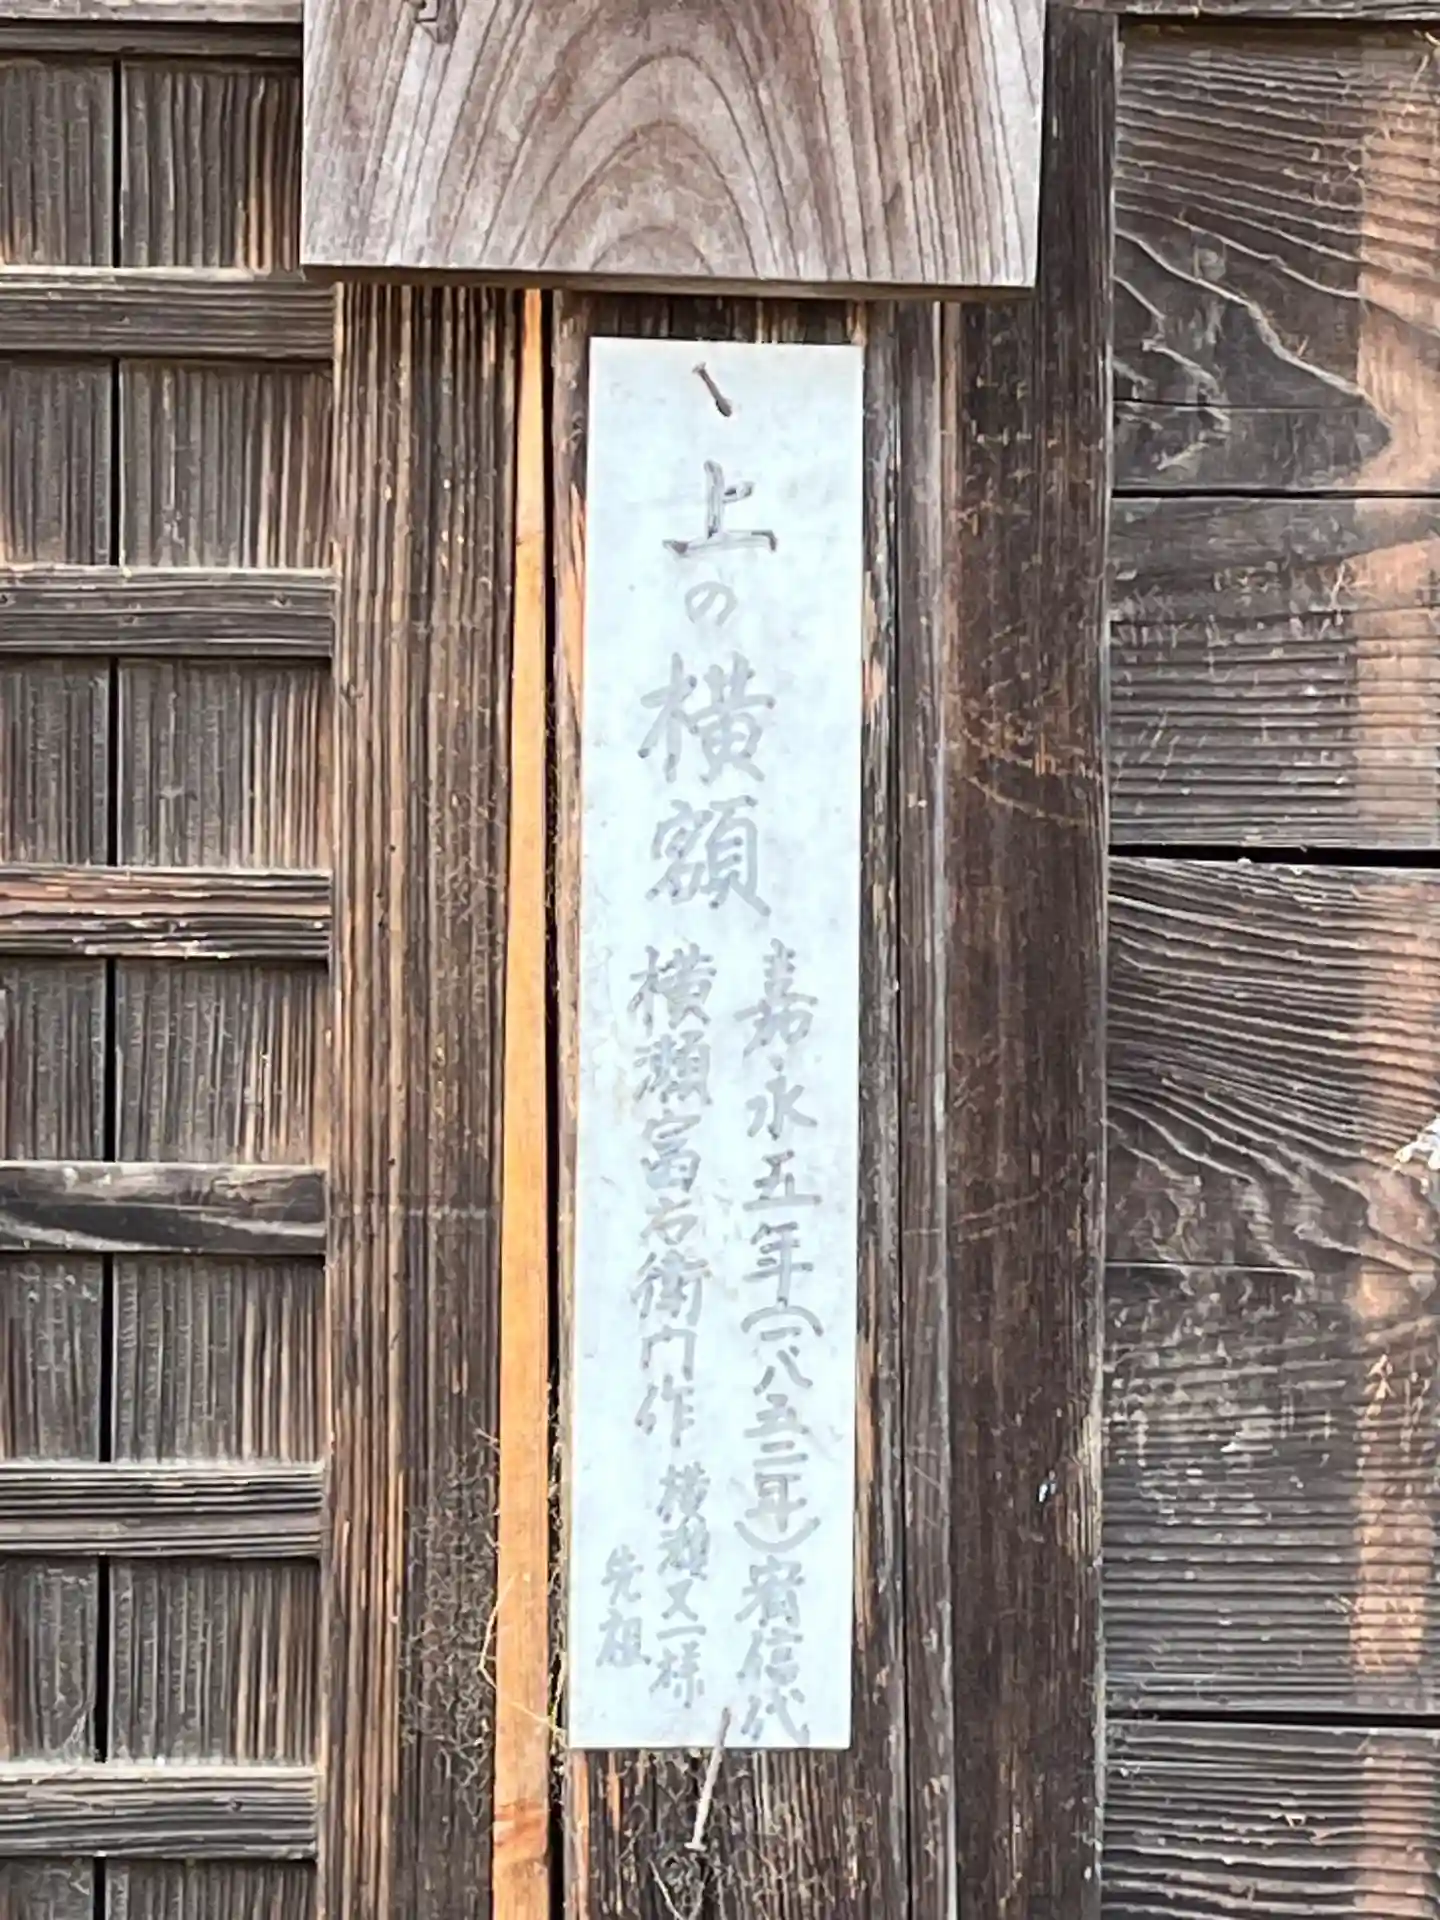 上の横額
嘉永五年(一八五二年)宥信代
横瀬富右衛門作
横瀬又一様
先祖